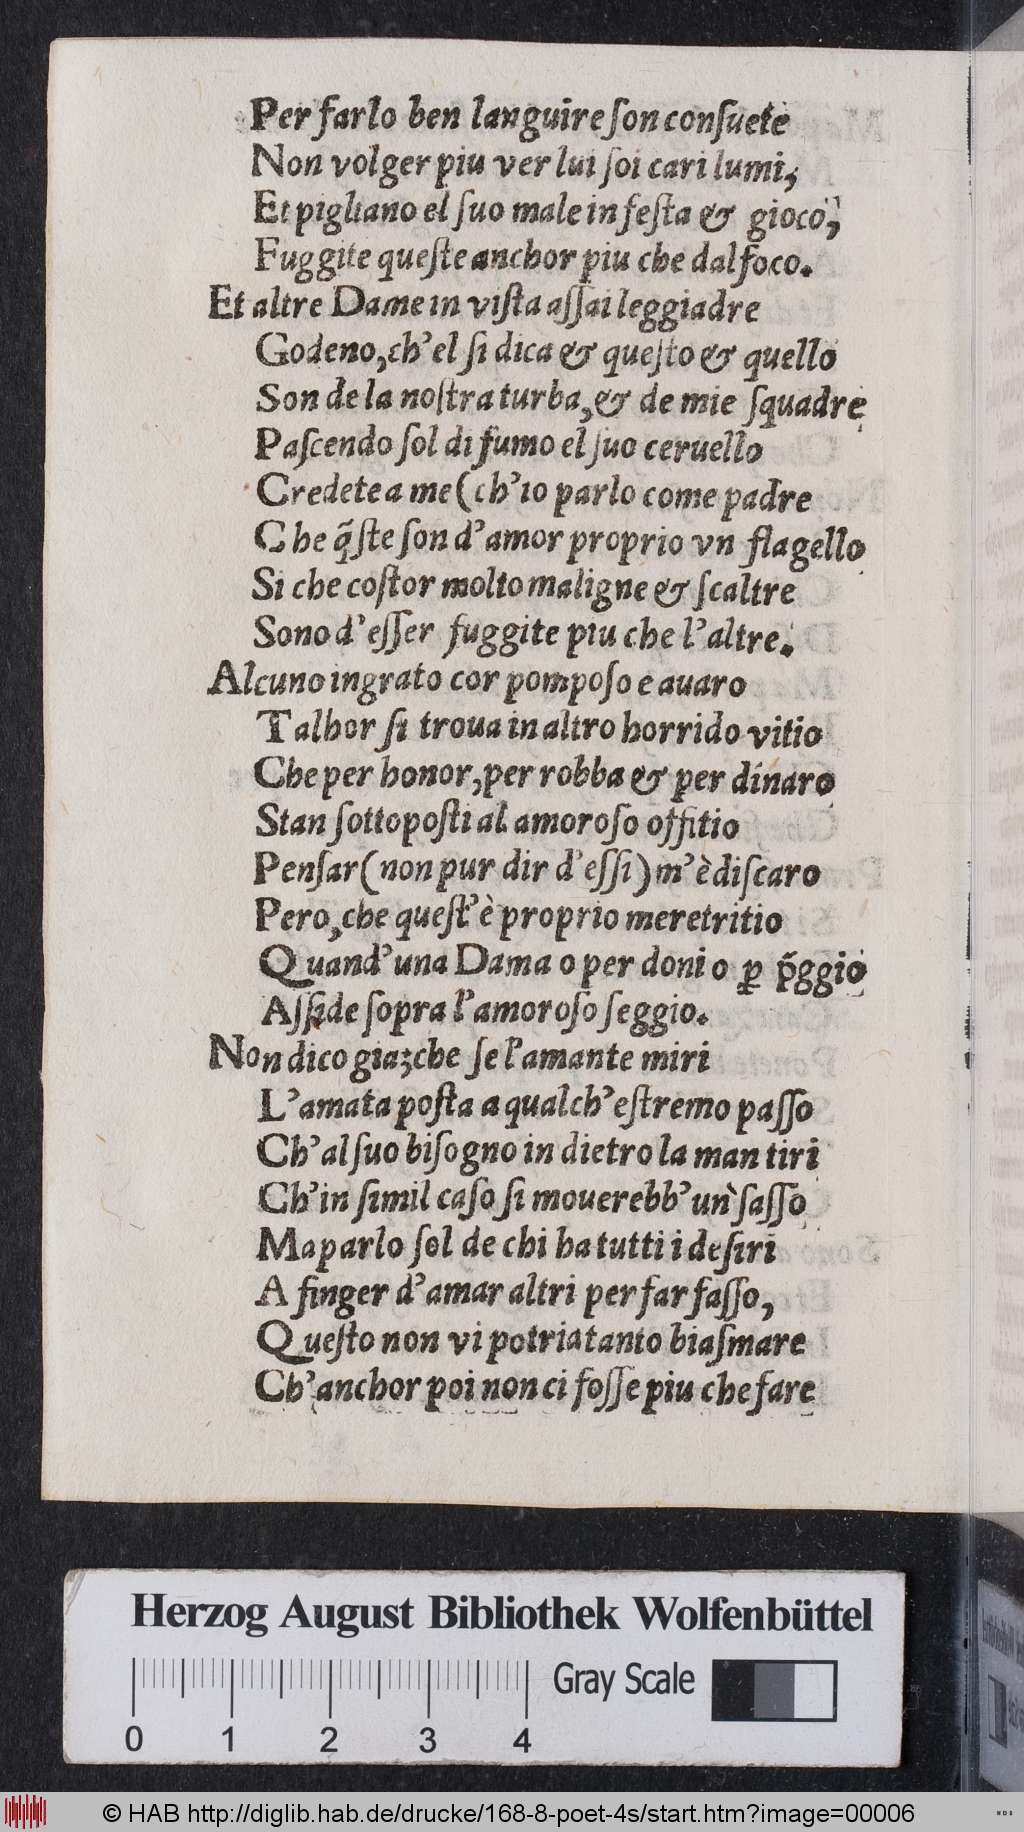 Per farlo ben languire ſon conſuete
Non volger piu ver lui ſoi cari lumi,
Et pigliano el ſuo male in feſta & gioco,
Fuggite queſte anchor piu che dal foco.
Et altre Dame in viſta aſſai leggiadre
Godeno, ch'el ſi dica & queſto & quello
Son de la noſtra turba, & de mie ſquadre
Paſcendo ſol di fumo el ſuo ceruello
Credete a me (ch'io parlo come padre
Che q̃ſte ſon d'amor proprio vn flagello
Si che coſtor molto maligne & ſcaltre
Sono d'eſſer fuggite piu che l'altre.
Alcuno ingrato cor pompoſo e auaro
Talhor ſi troua in altro horrido vitio
Che per honor, per robba & per dinaro
Stan ſottopoſti al amoroſo offitio
Penſar (non pur dir d'eſſi) m'è diſcaro
Pero, che queſt'è proprio meretritio
Quand'una Dama o per doni o ꝑ p̃ggio
Aſſide ſopra l'amoroſo ſeggio.
Non dico gia, che ſe l'amante miri
L'amata poſta a qualch'eſtremo paſſo
Ch'al ſuo biſogno in dietro la man tiri
Ch'in ſimil caſo ſi mouerebb'un ſaſſo
Ma parlo ſol de chi ha tutti i deſiri
A finger d'amar altri per far faſſo,
Queſto non vi potria tanto biaſmare
Ch'anchor poi non ci foſſe piu che fare
Herzog August Bibliothek Wolfenbüttel
Gray Scale
0 1 2 3 4
© HAB http://diglib.hab.de/drucke/168-8-poet-4s/start.htm?image=00006